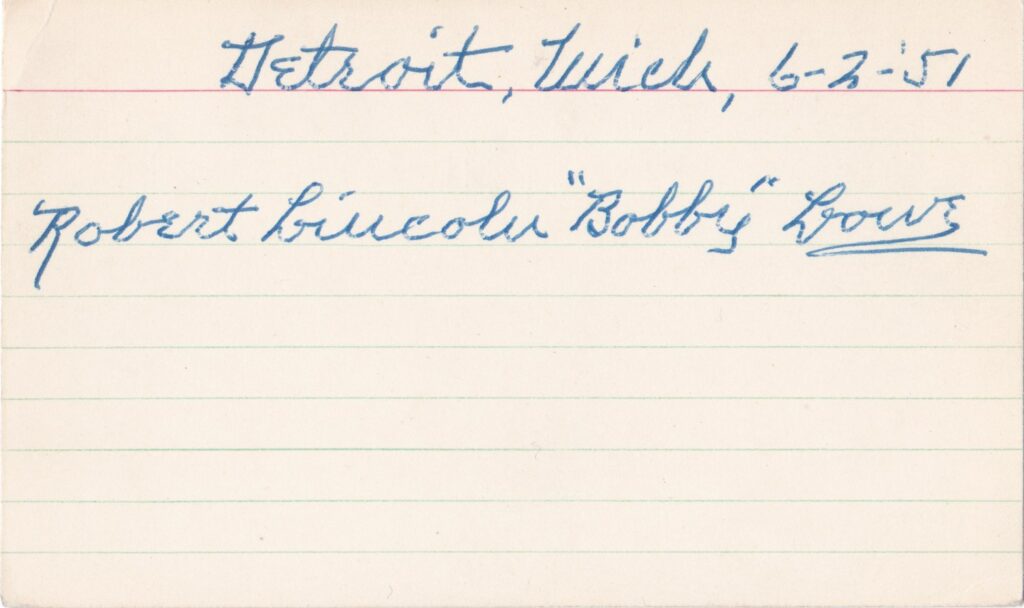 Detroit, Mich, 6-2-'51
Robert Lincoln "Bobby" Lowe